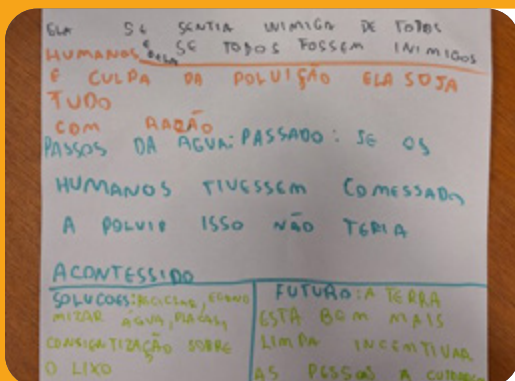 ELA SE SENTIA INIMIGA DE TODOS
HUMANOS E SE TODOS FOSSEM INIMIGOS
DELA
E CULPA DA POLUIÇÃO ELA SUJA
TUDO
COM RAZÃO
PASSOS DA AGUA: PASSADO: SE OS
HUMANOS TIVESSEM COMESSADO
A POLUIR ISSO NÃO TERIA
ACONTESSIDO
SOLUCOES: RECICLAR, ECONO
MIZAR ÁGUA, PLACAS,
CONSIENTIZAÇÃO SOBRE
O LIXO
FUTURO: A TERRA
ESTA BEM MAIS
LIMPA INCENTIVAR
AS PESSOAS A CUIDAREM